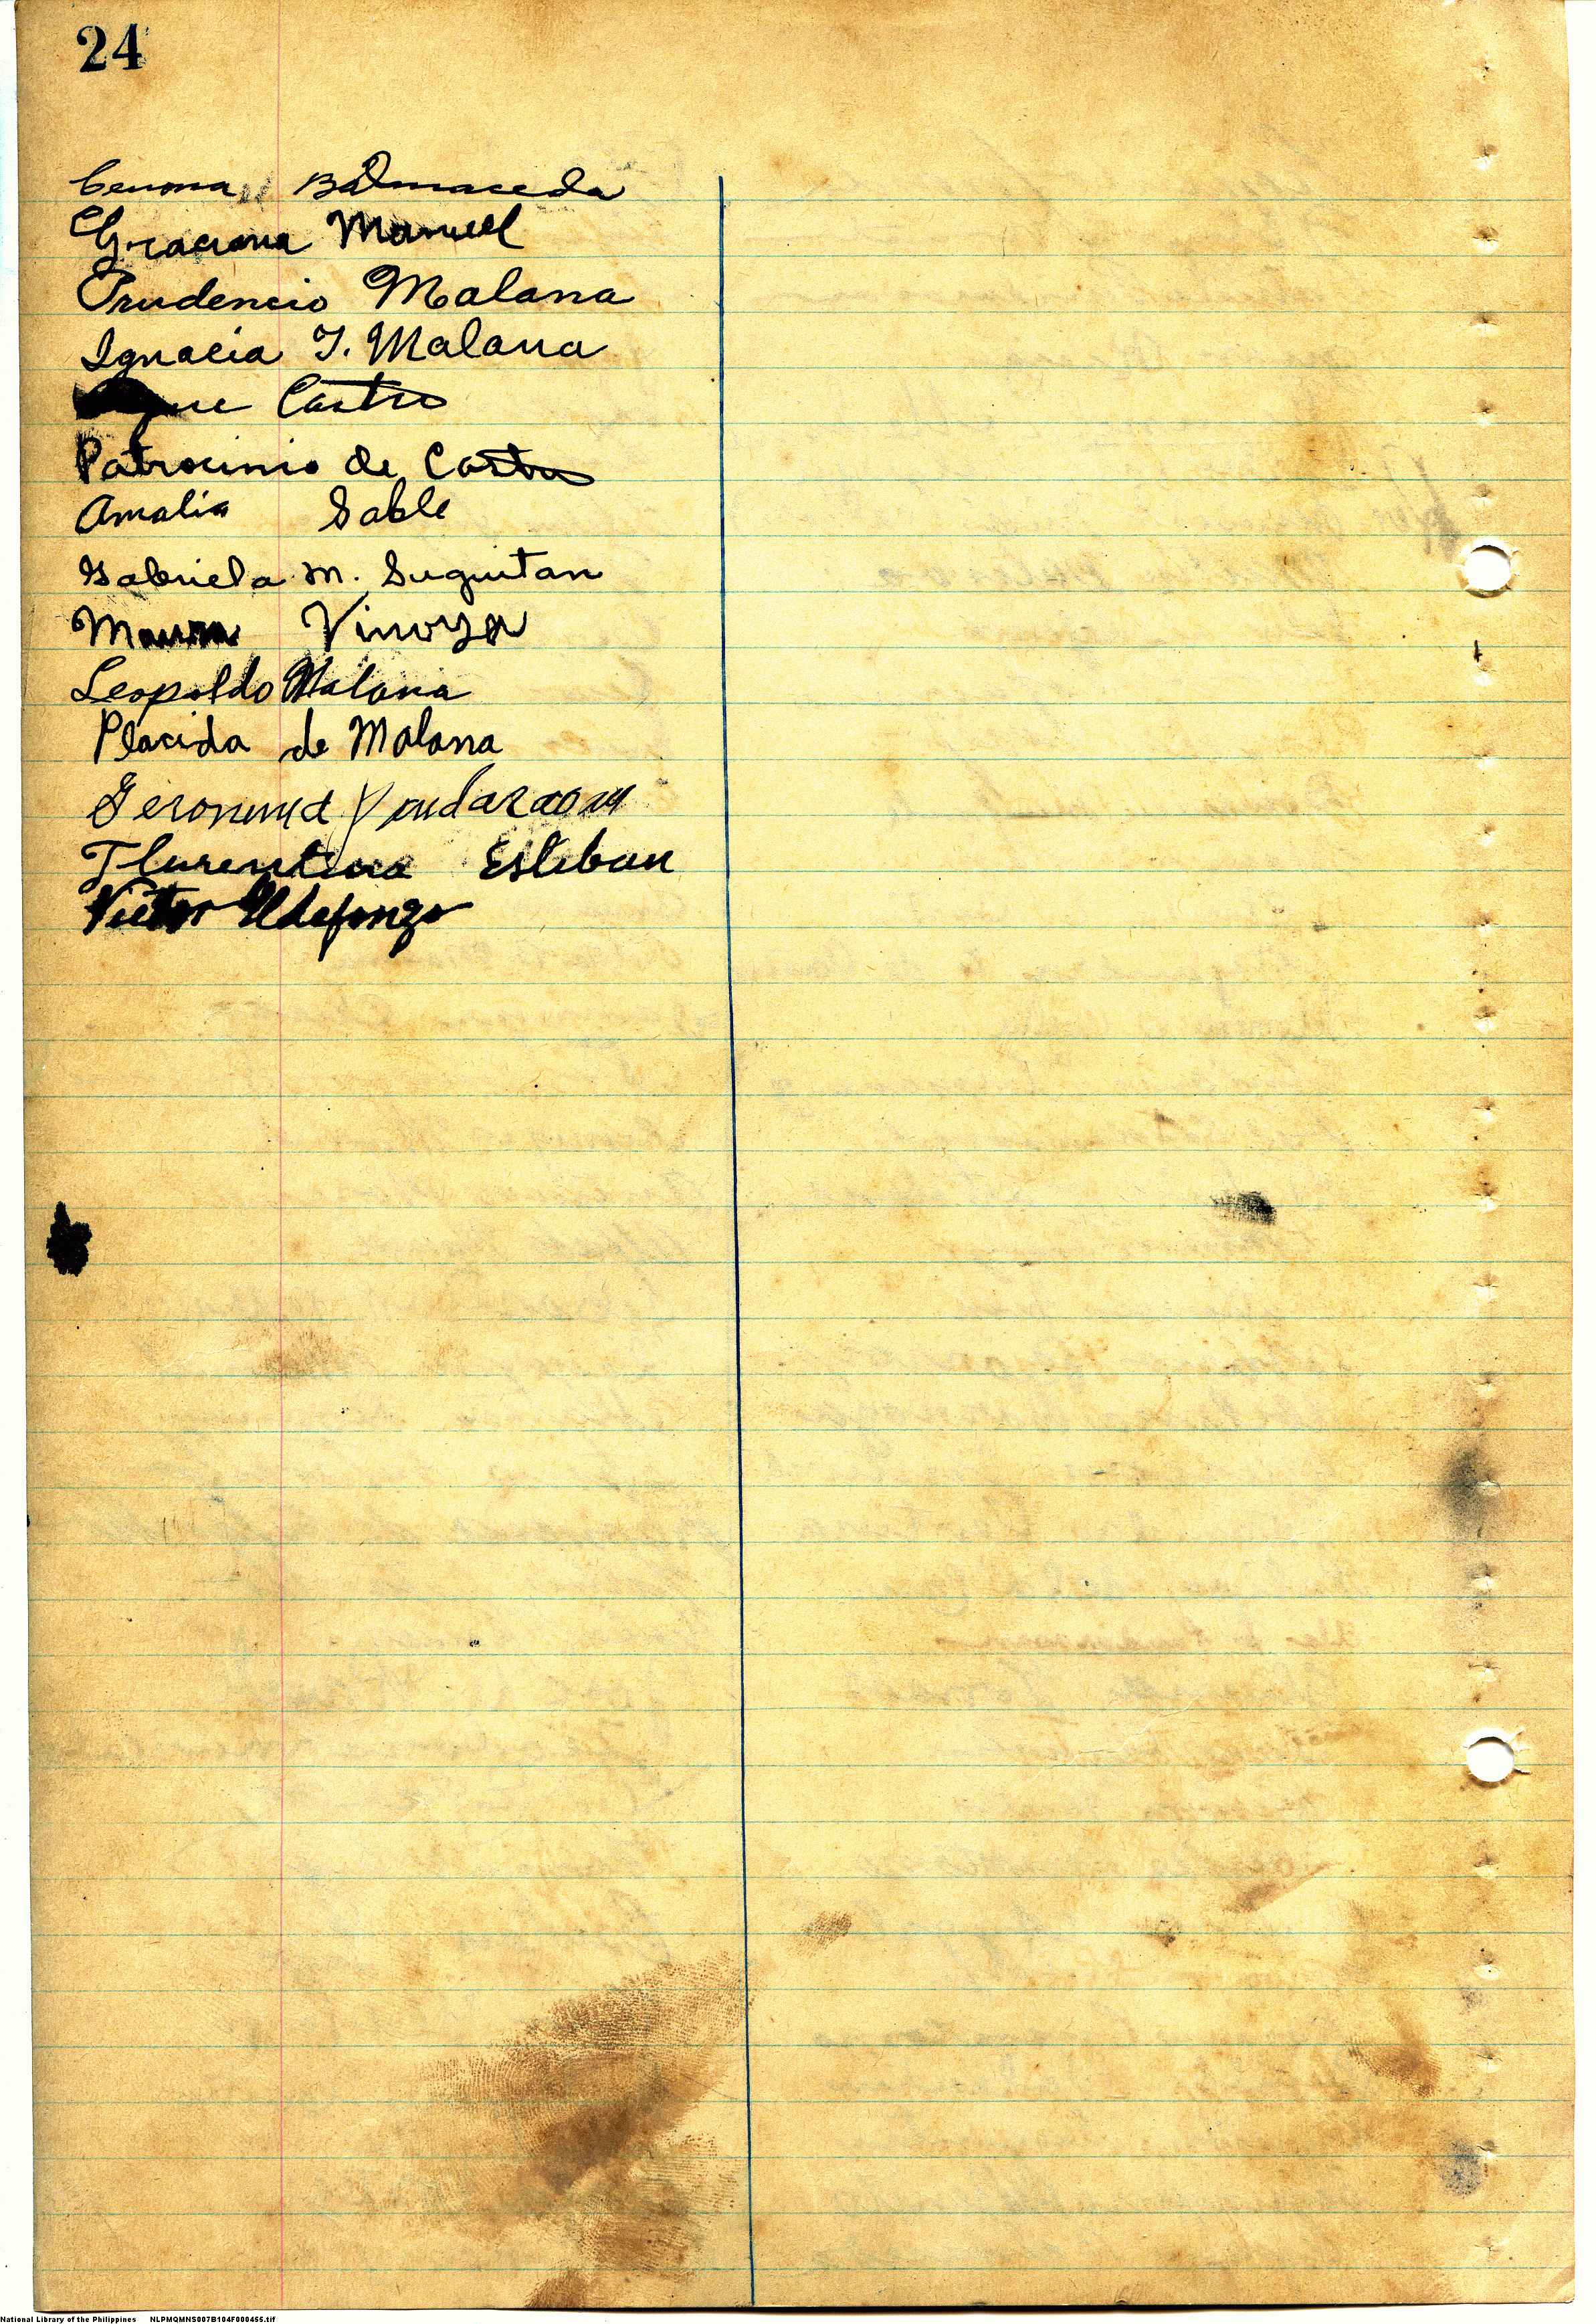 24
Cenona Balmaceda
Graciana Manuel
Prudencio Malana
Ignacia Y. Malana
Castro
Patrocinio de Castro
Amalia Sable
Gabriela M. Suguitan
Maura Vinoya
Leopoldo Malana
Placida de Malana
Geronima
Flurentina Esteban
Victor Ildefonzo
National Library of the Philippines NLPMQMNS007B104F000455.tif